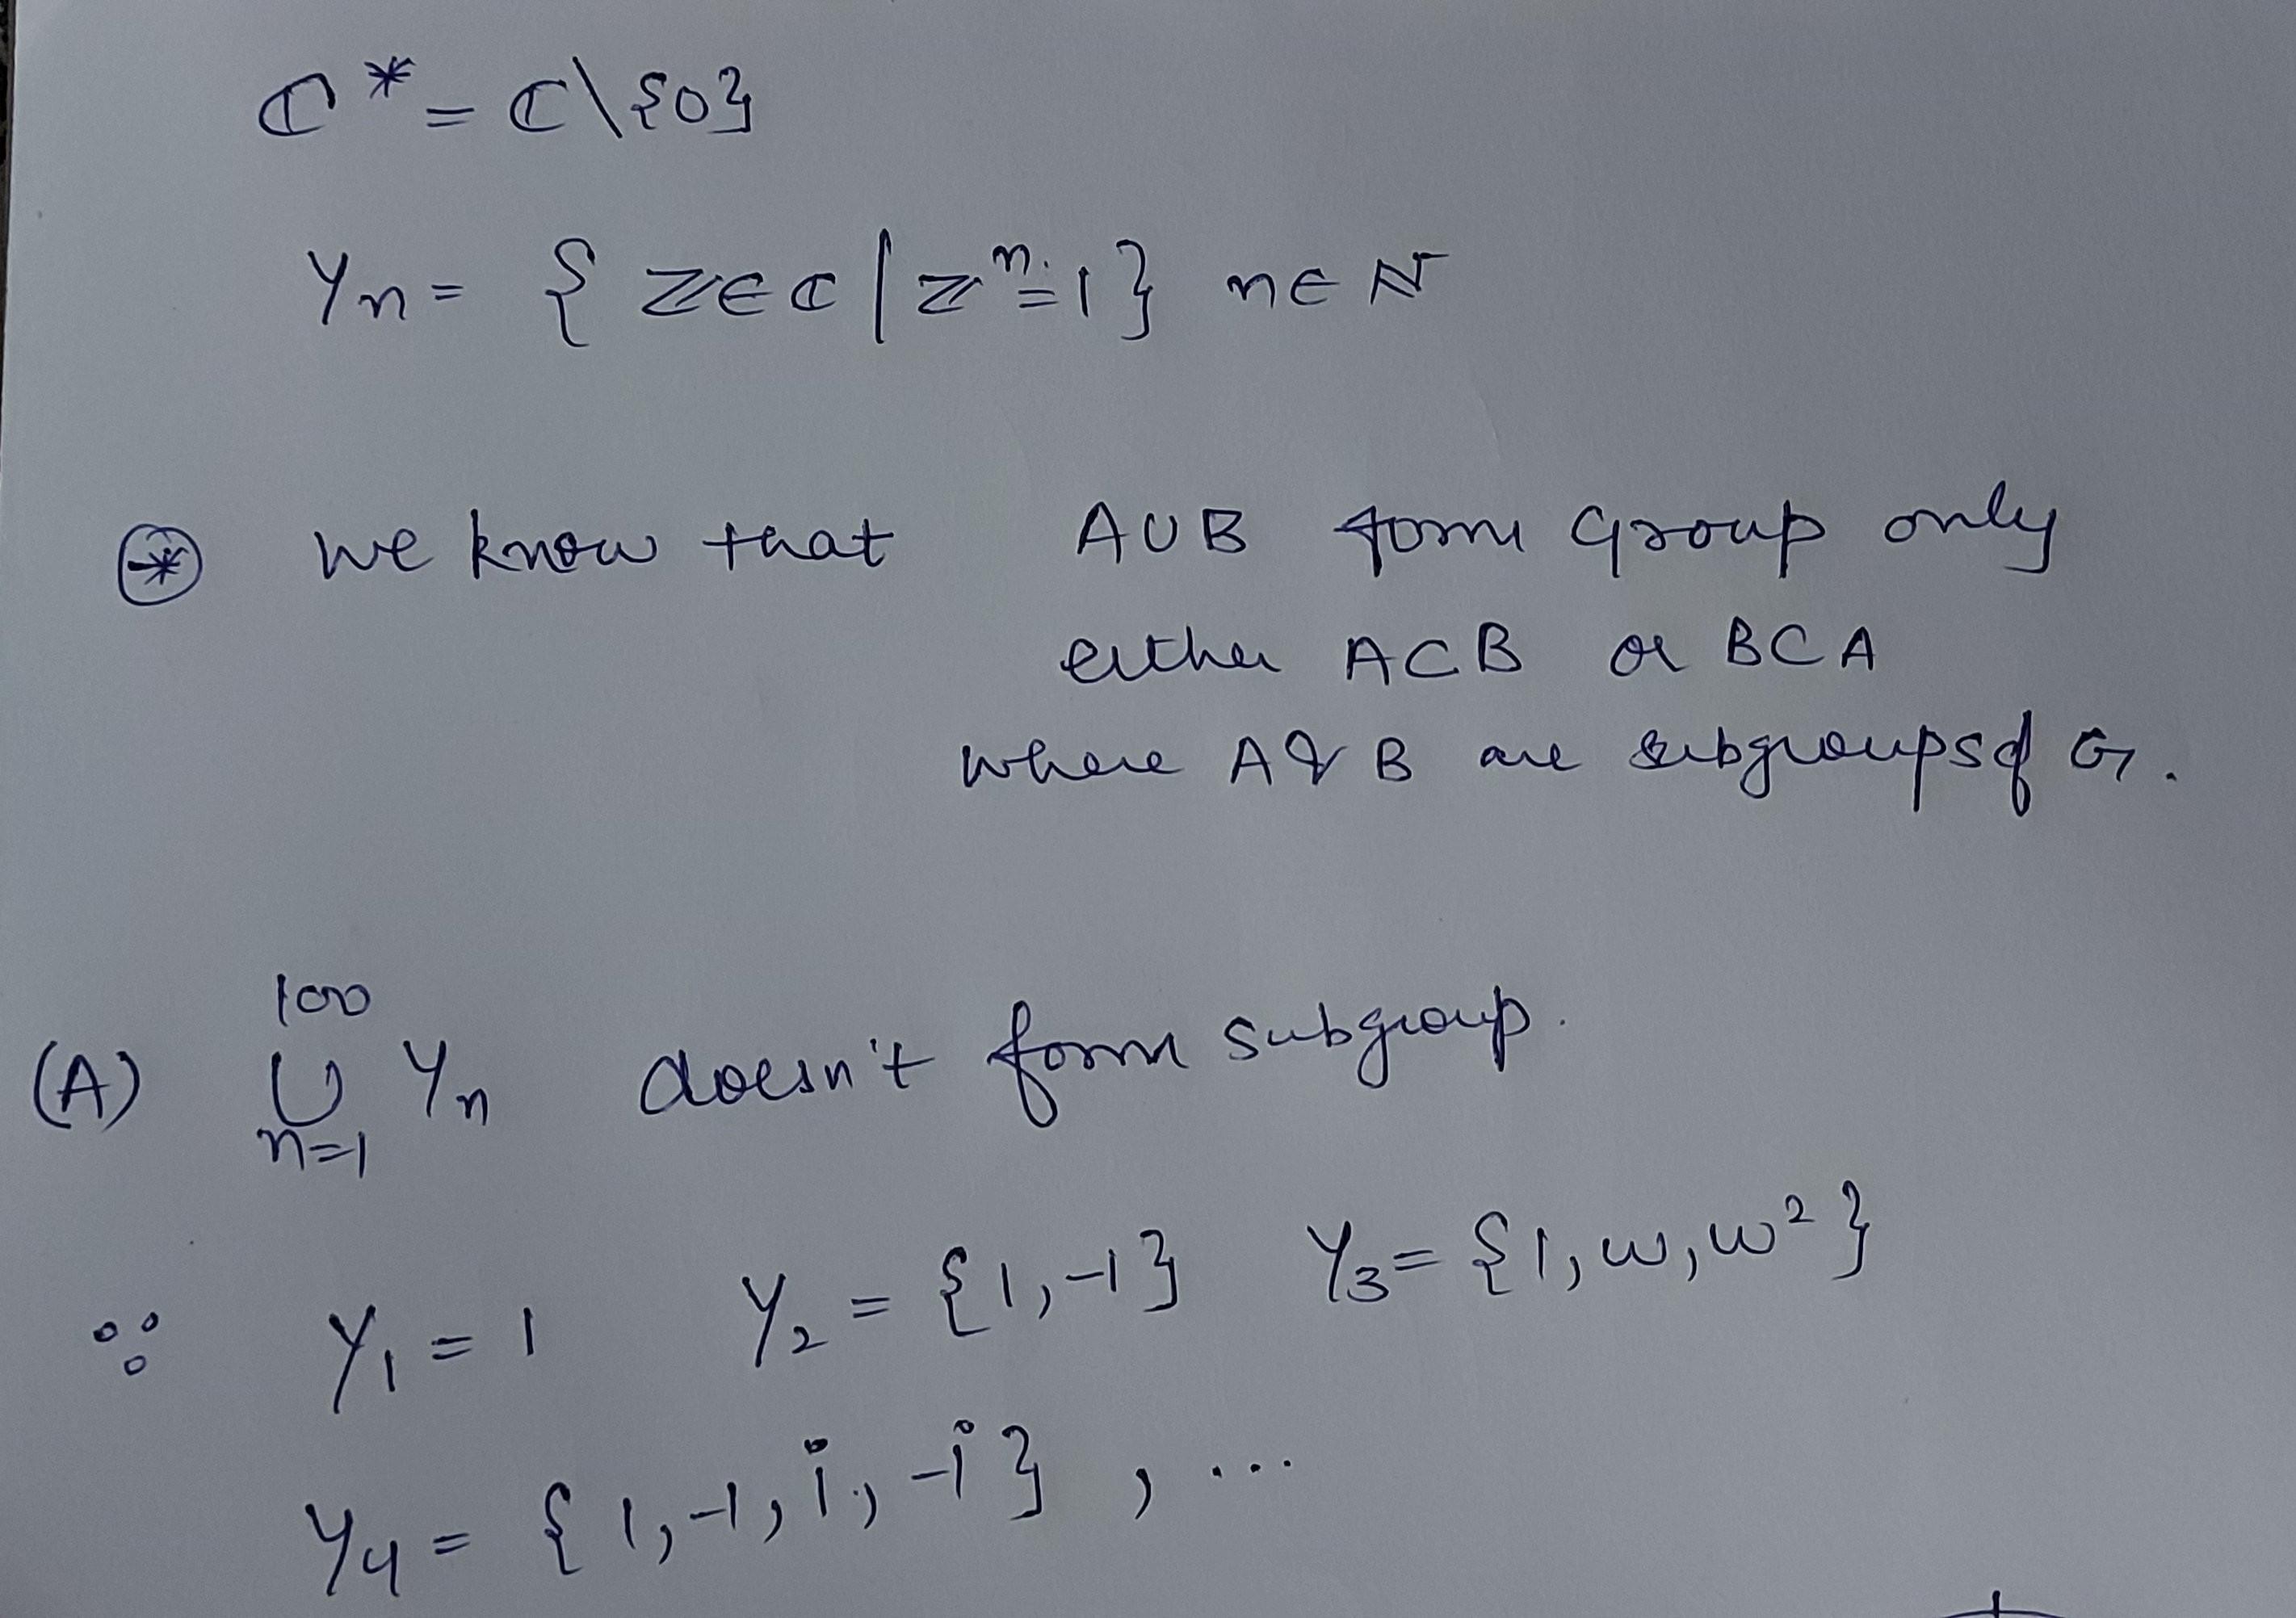 ℂ* = ℂ\{0}
Yn = { z∈ℂ | zⁿ = 1} n∈ℕ
⊛ We know that A∪B form Group only
either A⊂B or B⊂A
where A & B are subgroups of G.
100
(A) ∪ Yn doesn't form subgroup.
n=1
∵ Y₁ = 1 Y₂ = {1,-1} Y₃ = {1, ω, ω²}
Y₄ = {1,-1, i, -i} , ...